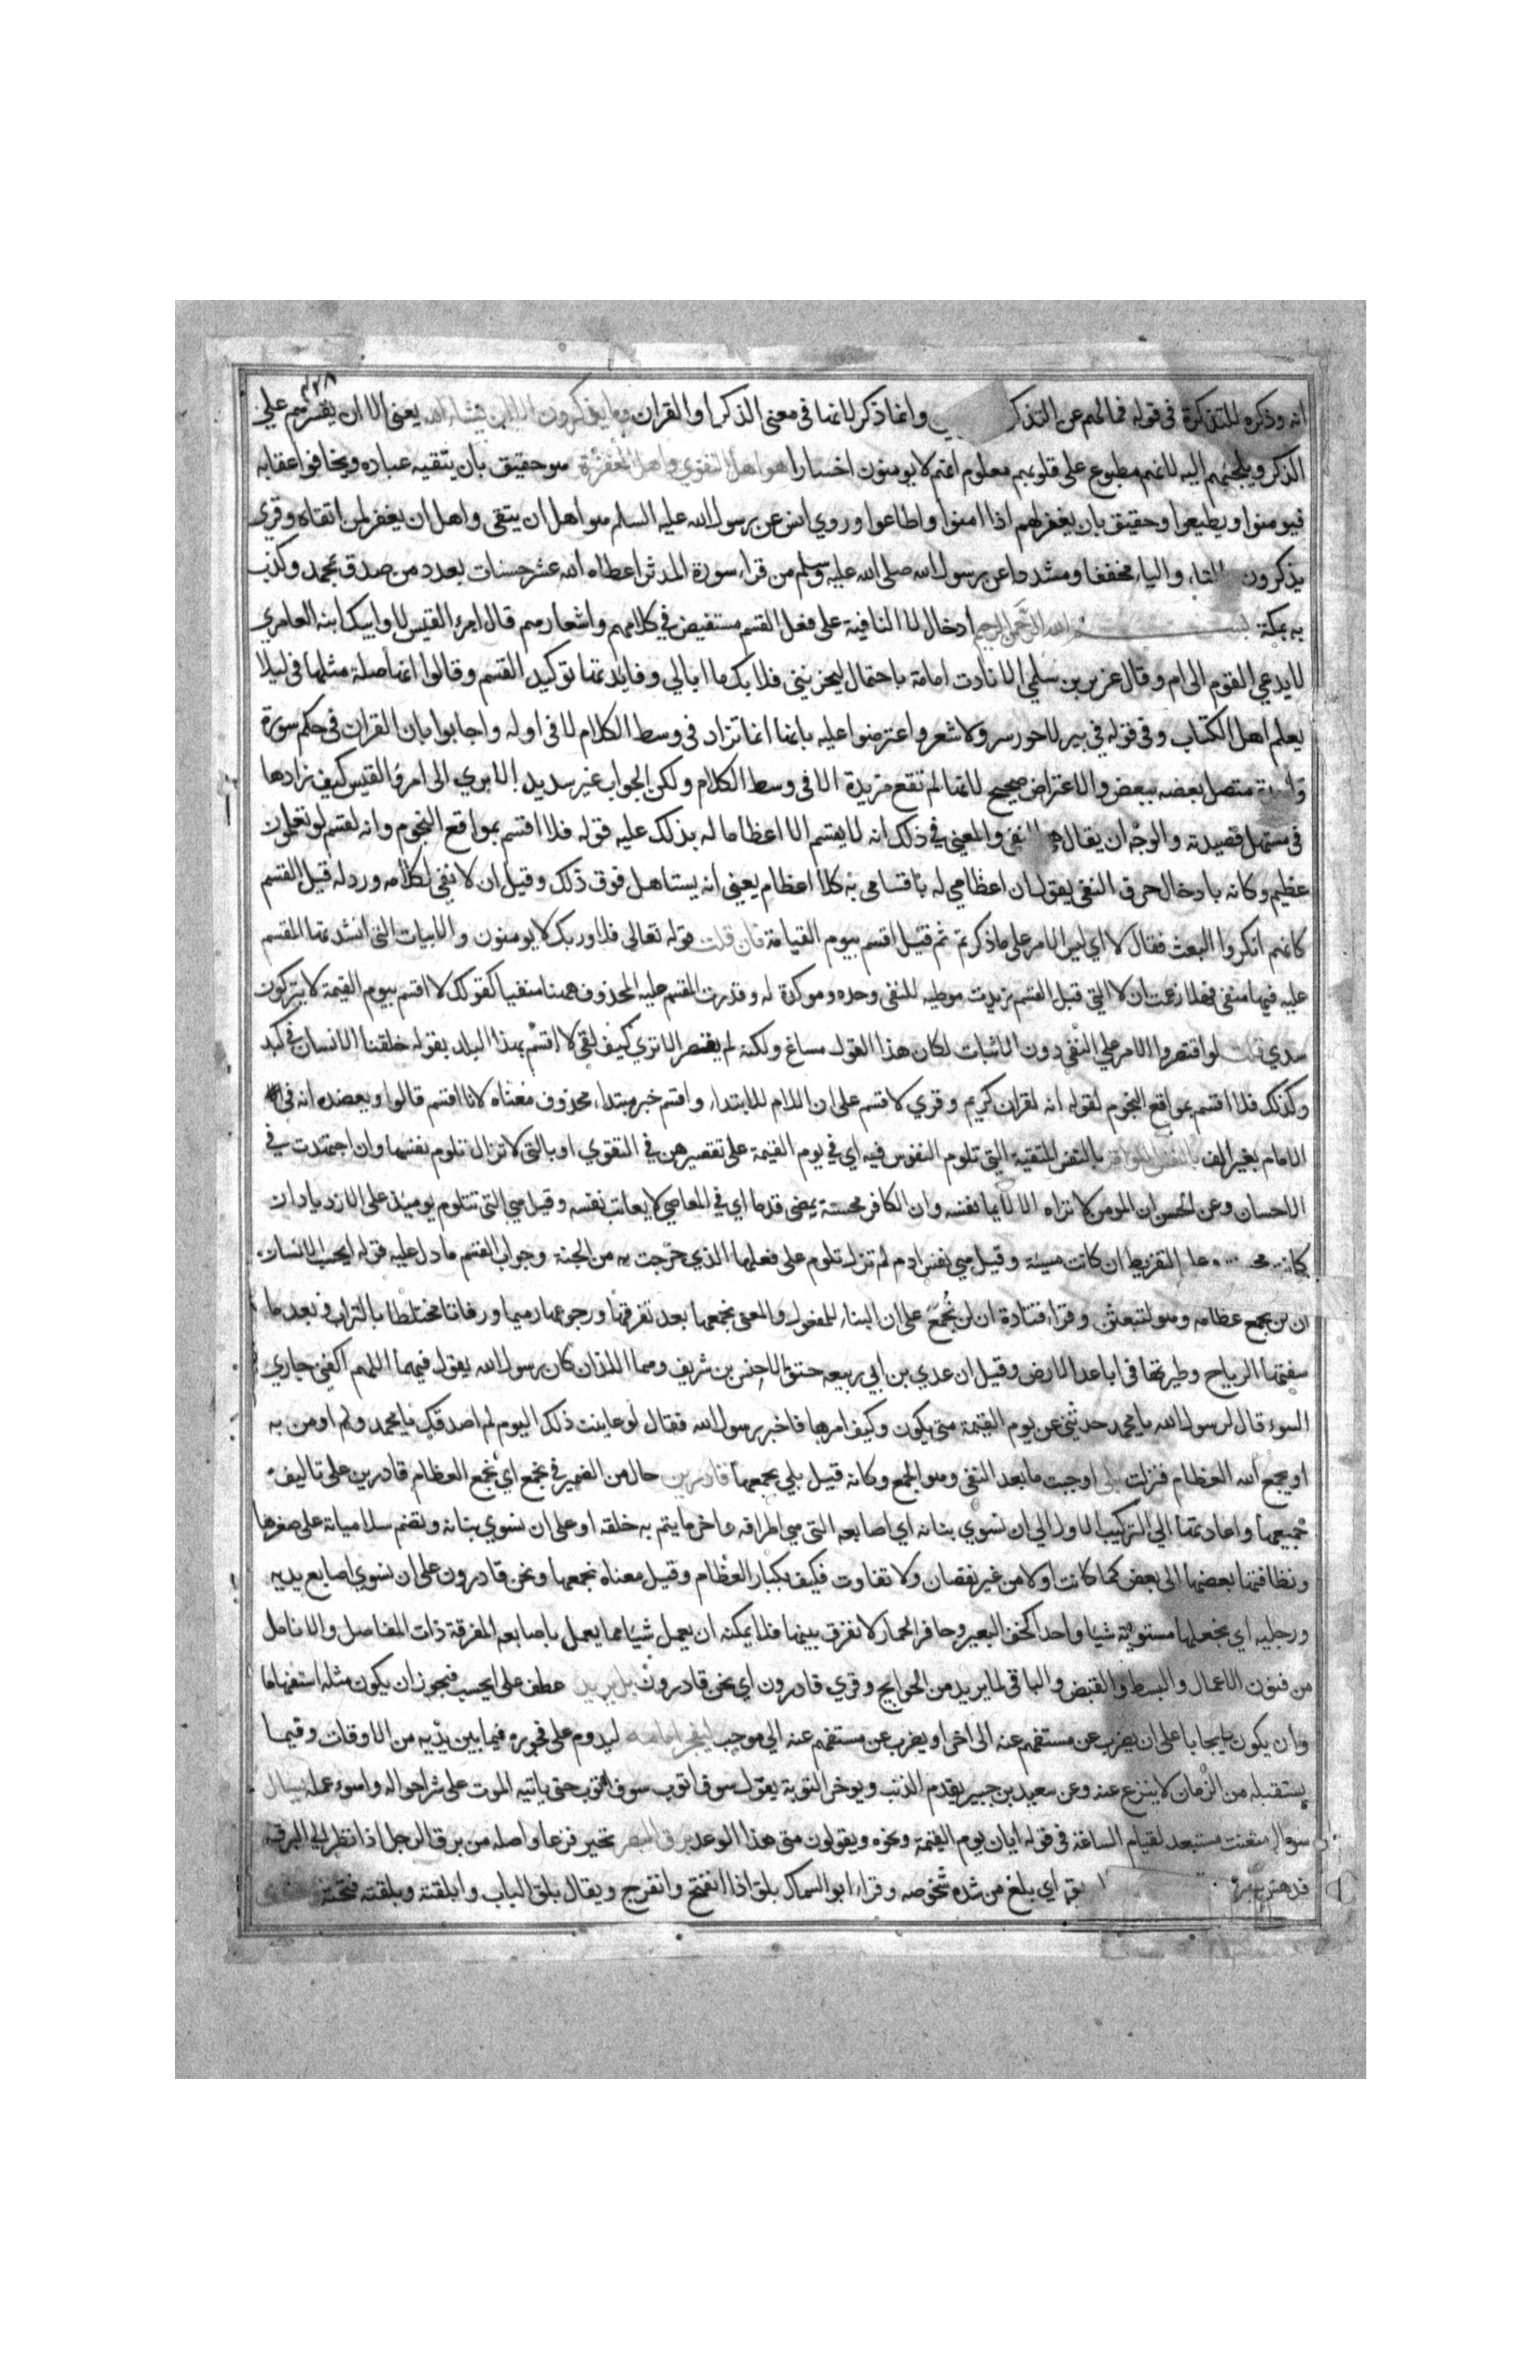 ٣٣٨
انه وذكره للتذكرة في قوله فما لهم عن التذكر وانما ذكر لانها في معنى الذكر او القران وما يذكرون الا ان يشاء الله يعني الا ان يقسرهم على
الذكر ويلجئهم اليه لانهم مطبوع على قلوبهم معلوم انهم لا يومنون اختيارا هو اهل التقوي واهل المغفرة هو حقيق بان يتقيه عباده ويخافوا عقابه
فيومنوا ويطيعوا وحقيق بان يغفر لهم اذا امنوا واطاعوا وروي انس عن رسول الله عليه السلم هو اهل ان يتقى واهل ان يغفر لمن اتقاه وقري
يذكرون بالتاء والياء مخففا ومشددا عن رسول الله صلى الله عليه وسلم من قراء سورة المدثر اعطاه الله عشر حسنات بعدد من صدق بمحمد وكذب
به بمكة بسم الله الرحمن الرحيم ادخال لا النافية على فعل القسم مستفيض في كلامهم واشعارهم قال امرء القيس لا وابيك ابنة العامري
لا يدعي القوم اني افر وقال غوية بن سلمي الا نادت امامة باحتمال ليحزنني فلا بك ما ابالي وفايدتها توكيد القسم وقالوا انها صلة مثلها في ليلا
يعلم اهل الكتاب وفي قوله في بير لا حور سرى ولا شعر واعترضوا عليه بانها انما تزاد في وسط الكلام لا في اوله واجابوا بان القران في حكم سورة
واحدة متصل بعضه ببعض والاعتراض صحيح لانها لم تقع مزيدة الا في وسط الكلام ولكن الجواب غير سديد الا تري الى امرؤ القيس كيف زادها
في مستهل قصيدته والوجه ان يقال هي للنفي والمعني في ذلك انه لا يقسم الا اعظاما له يدلك عليه قوله فلا اقسم بمواقع النجوم وانه لقسم لو تعلمون
عظيم وكانه بادخال حرف النفي يقول ان اعظامي له باقسامي به كلا اعظام يعني انه يستاهل فوق ذلك وقيل ان لا نفي لكلام ورد له قبل القسم
كانهم انكروا البعث فقال لا اي ليس الامر على ما ذكرتم ثم قيل اقسم بيوم القيامة فان قلت قوله تعالى فلا وربك لا يومنون والابيات التي انشدتها المقسم
عليه فيها منفي فهلا زعمت ان لا التي قبل القسم زيدت موطية للنفي وحده وموكدة له وقدرت المقسم عليه المحذوف ههنا منفيا كقولك لا اقسم بيوم القيمة لا تتركون
سدي قلت لو اقتصروا الامر على النفي دون الاثبات لكان هذا القول مساغ ولكنه لم يقتصر الا تري كيف لقي لا اقسم بهذا البلد بقوله خلقنا الانسان في كبد
وكذلك فلا اقسم بمواقع النجوم لقوله انه لقران كريم وقري لاقسم على ان اللام للابتداء واقسم خبر مبتداء محذوف معناه لانا اقسم قالوا ويعضده انه في
الامام بغير الف بالنفس اللوامة بالنفس المتقية التي تلوم النفوس فيه اي في يوم القيمة على تقصيرهن في التقوي او بالتي لا تزال تلوم نفسها وان اجتهدت في
الاحسان وعن الحسن ان المومن لا تراه الا لايما نفسه وان الكافر محسنة يمضي قدما اي في المعاصي لا يعاتب نفسه وقيل هي التي تتلوم يوميذ على الازدياد ان
كانت على التفريط ان كانت مسيئة وقيل هي نفس ادم لم تزل تلوم على فعلها الذي خرجت به من الجنة وجواب القسم ما دل عليه قوله ايحسب الانسان
ان لن نجمع عظامه وهو لتبعثن وقراء قتادة ان لن تُجمع على ان البناء للمفعول والمعني نجمعها بعد تفرقها ورجوعها رميما ورفاتا مختلطا بالتراب وبعد ما
سفتها الرياح وطيرتها في اباعد الارض وقيل ان عدي بن ابي ربيعه ختن الاخنس بن شريف وهما اللذان كان رسول الله يقول فيهما اللهم اكفني جاري
السوء قال لرسول الله يا محمد حدثني عن يوم القيمة متى يكون وكيف امرها فاخبر رسول الله فقال لو عاينت ذلك اليوم لم اصدقك يا محمد ولم اومن به
او يجمع الله العظام فنزلت بلى اوجبت ما بعد النفي وهو الجمع وكانه قيل بلي نجمعها قادرين حال من الضمير في نجمع اي نجمع العظام قادرين على تاليف
جميعها واعادتها الي التركيب الاول الي ان نسوي بنانه اي اصابعه التي هي اطرافه واخر ما يتم به خلقه او على ان نسوي بنانه ونضم سلامياته على صغرها
ونظافتها بعضها الى بعض كما كانت اولا من غير نقصان ولا تفاوت فكيف بكبار العظام وقيل معناه نجمعها ونحن قادرون على ان نسوي اصابع يديه
ورجليه اي نجعلها مستوية شيا واحدا كخف البعير وحافر الحمار لا نفرق بينها فلا يمكنه ان يعمل شيا مما يعمل باصابعه المفرقة ذات المفاصل والانامل
من فنون الاعمال والبسط والقبض والباقي لما يريد من الحوايج وقري قادرون اي نحن قادرون بل يريد عطف على ايحسب فيجوز ان يكون مثله استفهاما
وان يكون ايجابا على ان يضرب عن مستفهم عنه الى اخر او يضرب عن مستفهم عنه الي موجب ليفجر امامه ليدوم على فجوره فيما بين يديه من الاوقات وفيما
يستقبله من الزمان لا ينزع عنه وعن سعيد بن جبير يقدم الذنب ويوخر التوبة يقول سوف اتوب سوف اتوب حتى ياتيه الموت على شر احواله واسوء عمله يسال
سوال متعنت مستبعد لقيام الساعة في قوله ايان يوم القيمة ونحوه ويقولون متى هذا الوعد برق البصر تحير فزعا واصله من برق الرجل اذا نظر الي البرق
فدهش بصره اي بلغ من شدة شخوصه وقراء ابو السمال بلق اذا انفتح وانفرج ويقال بلق الباب وابلقته وبلقته فتحته